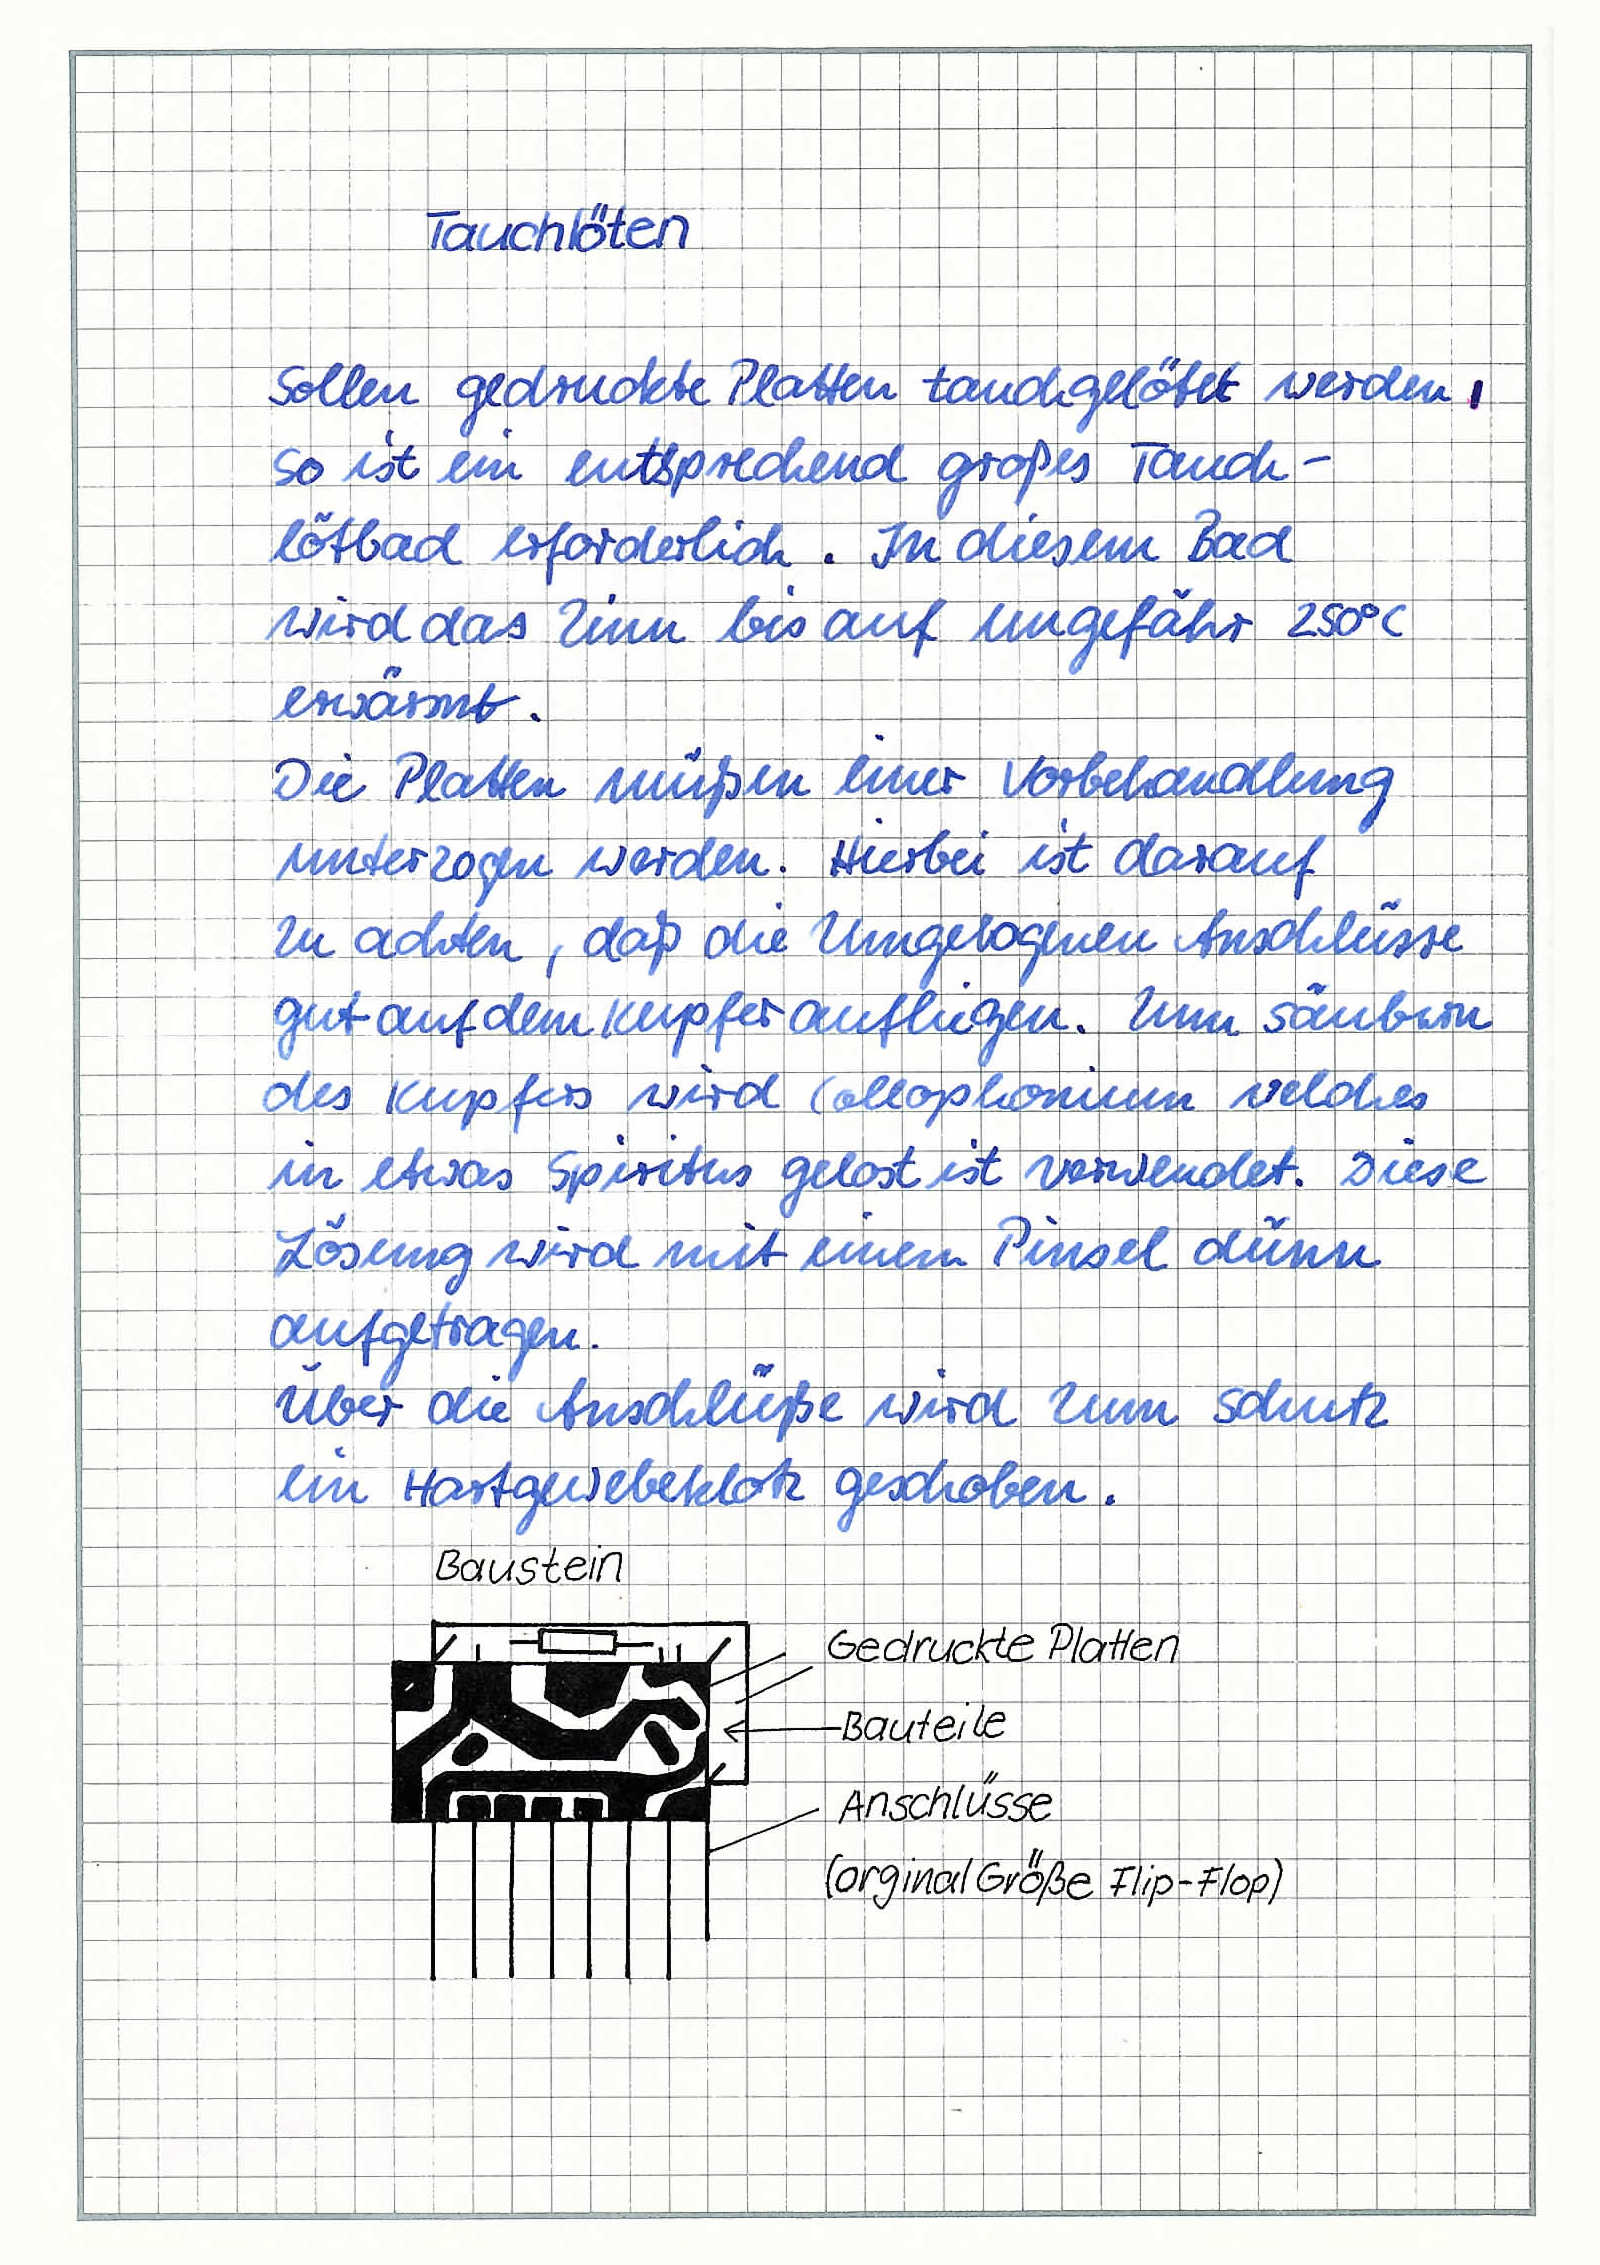 Tauchlöten
Sollen gedruckte Platten tauchgelötet werden,
so ist ein entsprechend großes Tauch-
lötbad erforderlich. In diesem Bad
wird das Zinn bis auf ungefähr 250°C
erwärmt.
Die Platten müßen einer Vorbehandlung
unterzogen werden. Hierbei ist darauf
zu achten, daß die Umgebogenen Anschlüsse
gut auf dem Kupfer aufliegen. Zum säubern
des Kupfers wird Collophonium welches
in etwas Spiritus gelost ist verwendet. Diese
Lösung wird mit einem Pinsel dünn
aufgetragen.
Über die Anschlüße wird zum Schutz
ein Hartgewebeklotz geschoben.
Baustein
Gedruckte Platten
Bauteile
Anschlüsse
(orginal Größe Flip-Flop)